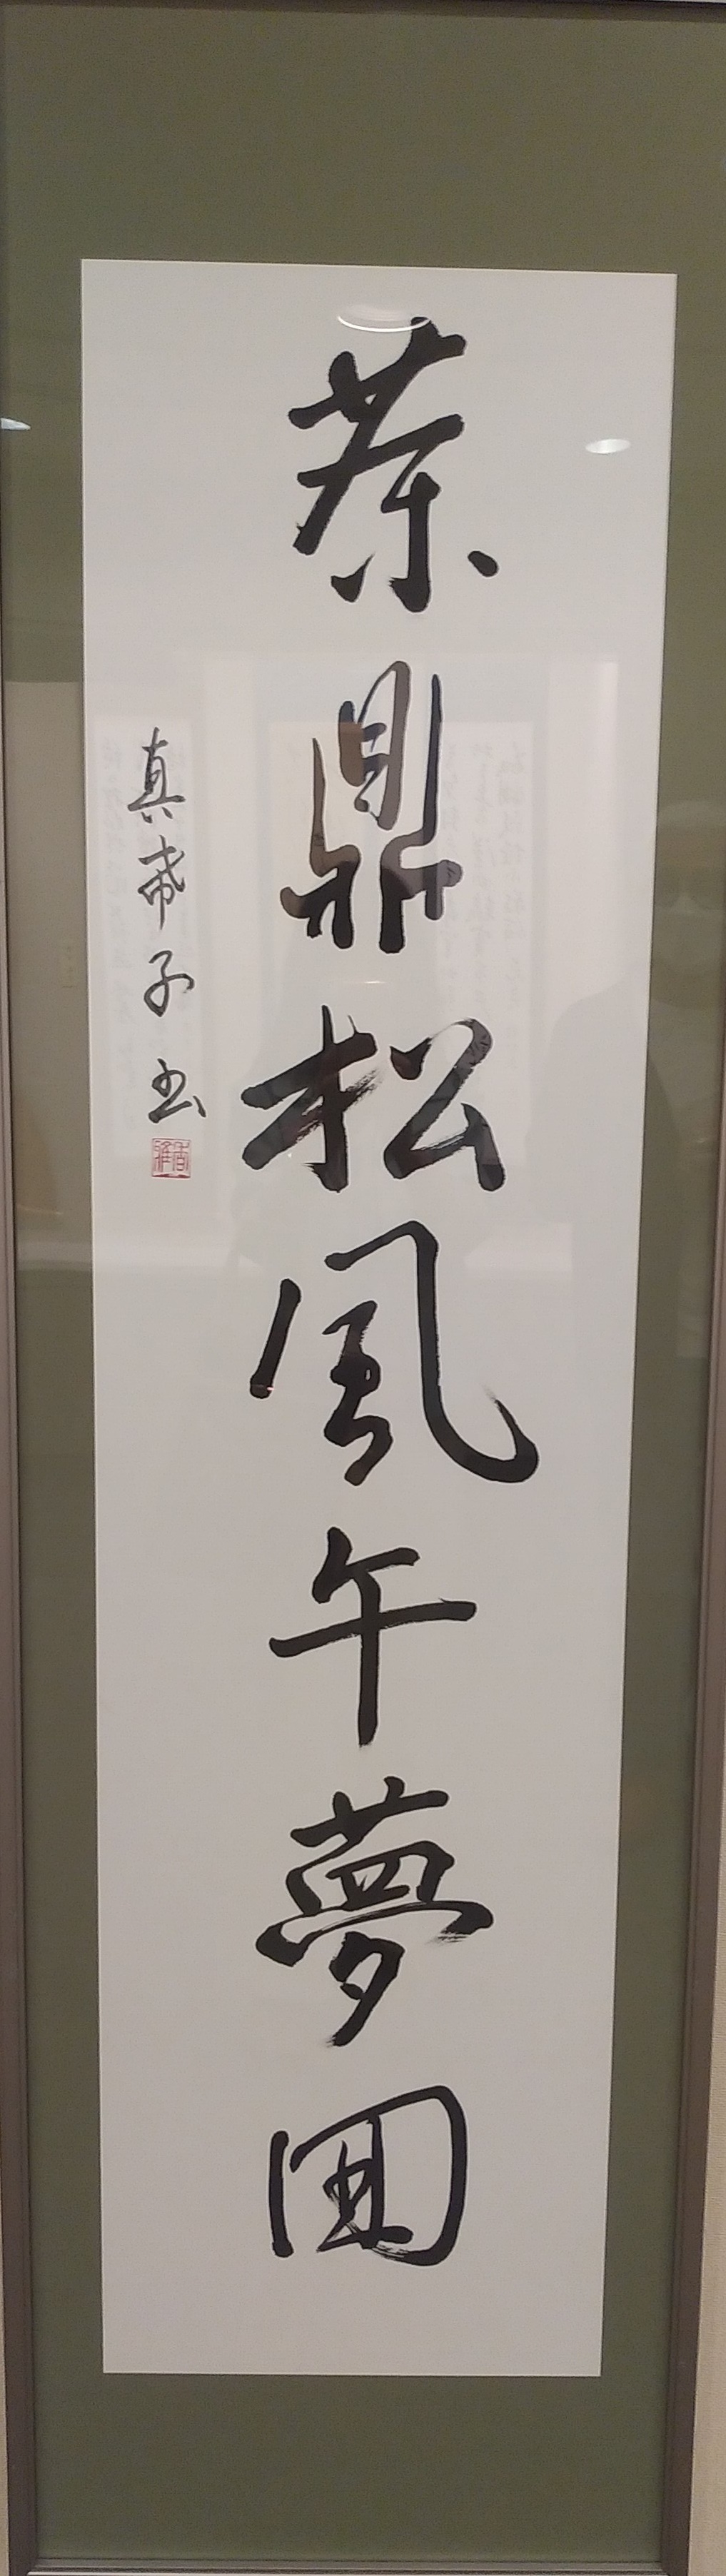 茶鼎松風午夢回
真希子書